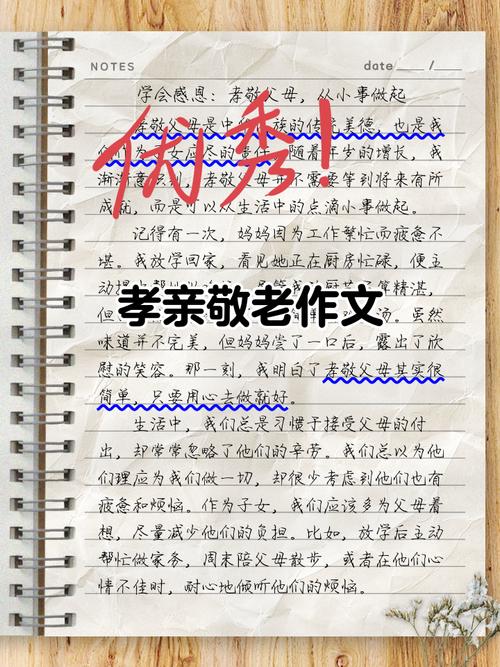 NOTES date ___ / ___
学会感恩：孝敬父母，从小事做起
优秀！
孝敬父母是中 族的传 美德，也是我
们 女应尽的责任。随着年岁的增长，我
渐渐意识到，孝敬父母并不需要等到将来有所
成就，而是可以从生活中的点滴小事做起。
记得有一次，妈妈因为工作繁忙而疲惫不
堪。我放学回家，看见她正在厨房忙碌，便主
动提出 精湛，
孝亲敬老作文
但 汤。虽然
味道并不完美，但妈妈尝了一口后，露出了欣
慰的笑容。那一刻，我明白了孝敬父母其实很
简单，只要用心去做就好。
生活中，我们总是习惯于接受父母的付
出，却常常忽略了他们的辛劳。我们总以为他
们理应为我们做一切，却很少考虑到他们也有
疲惫和烦恼。作为子女，我们应该多为父母着
想，尽量减少他们的负担。比如，放学后主动
帮忙做家务，周末陪父母散步，或者在他们心
情不佳时，耐心地倾听他们的烦恼。